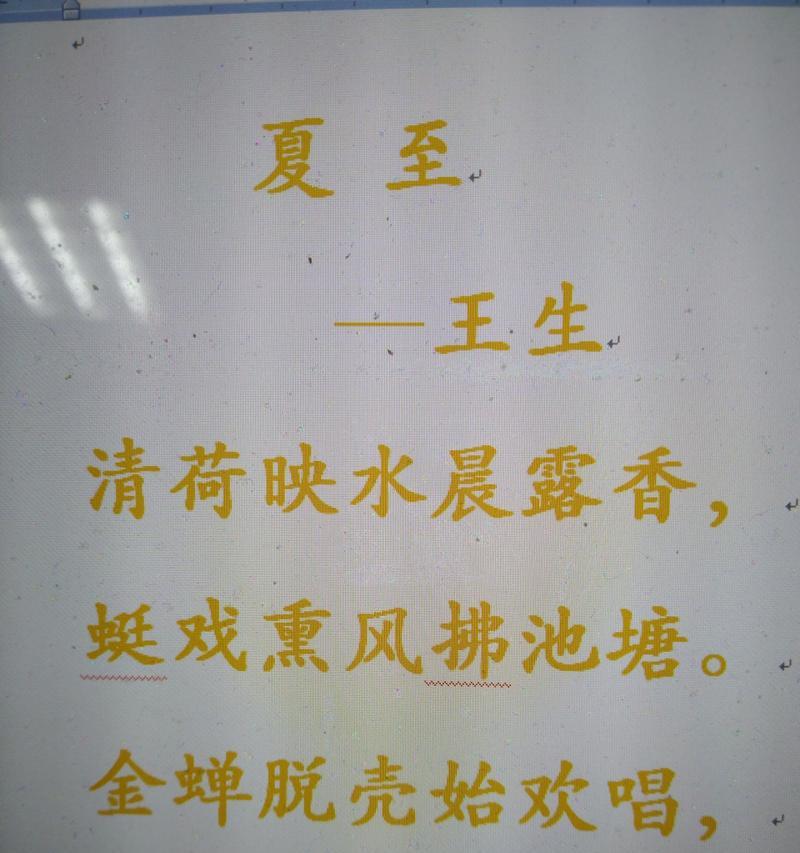 夏 至
——王生
清荷映水晨露香，
蜓戏熏风拂池塘。
金蝉脱壳始欢唱，